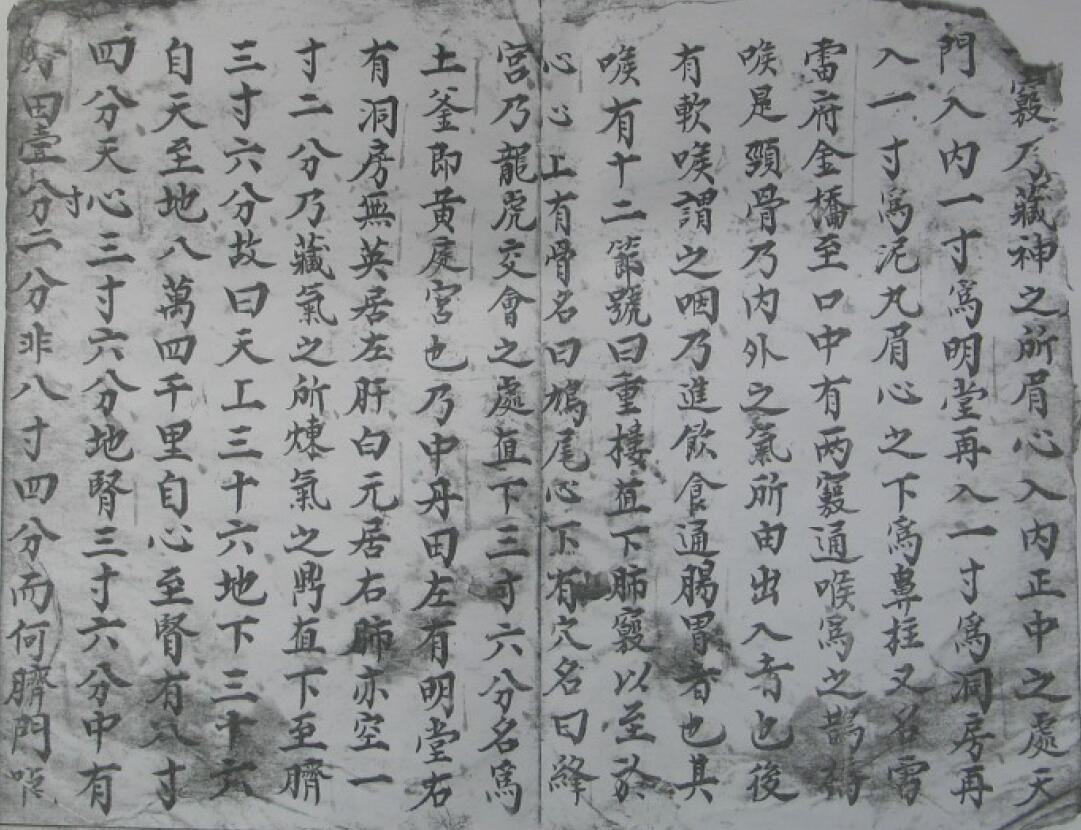 竅乃藏神之所眉心入內正中之處天
門入內一寸爲明堂再入一寸爲洞房再
入一寸爲泥丸眉心之下爲鼻柱又名雷
霤府金橋至口中有两竅通喉爲之鹊橋
喉是頸骨乃內外之氣所由出入者也後
有軟喉謂之咽乃進飲食通腸胃者也其
喉有十二節號曰重樓直下肺竅以至於
心心上有骨名曰鳩尾心下有穴名曰絳
宮乃龍虎交會之處直下三寸六分名爲
土釜即黃庭宮也乃中丹田左有明堂右
有洞房無英居左肝白元居右肺亦空一
寸二分乃藏氣之所煉氣之鼎直下至臍
三寸六分故曰天上三十六地下三十六
自天至地八萬四千里自心至腎有八寸
四分天心三寸六分地腎三寸六分中有
丹田壹寸二分非八寸四分而何臍門